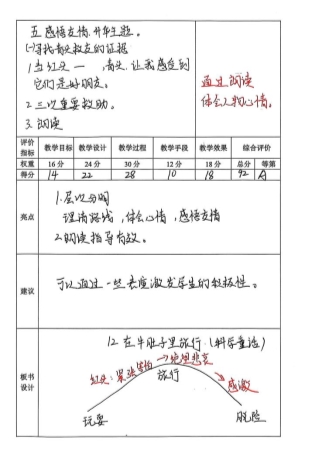 五感悟友情,升华主题。
(一)寻找青头救友的证据
1.当红头一 ,青头,让我感受到
它们是好朋友。
2.三次重要救助。
3.朗读
通过朗读
体会人物心情。
评价指标 教学目标 教学设计 教学过程 教学手段 教学效果 综合评价
权重 16分 24分 30分 12分 18分 总分 等第
得分 14 22 28 10 18 92 A
亮点
1.层次分明
理清路线,体会心情,感悟友情
2.朗读指导有效。
建议
可以通过一些表演激发学生的积极性。
板书设计
12在牛肚子里旅行(科学童话)
红头:紧张害怕→绝望悲哀
旅行
→感激
玩耍
脱险